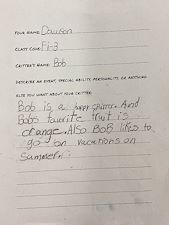 YOUR NAME: Dawson
CLASS CODE: F1-3
CRITTER'S NAME: Bob
DESCRIBE AN EVENT, SPECIAL ABILITY, PERSONALITY, OR ANYTHING
ELSE YOU WANT ABOUT YOUR CRITTER:
Bob is a happy critter. And
Bobs favorite fruit is
orange. Also BoB likes to
go on vacations on
summer.